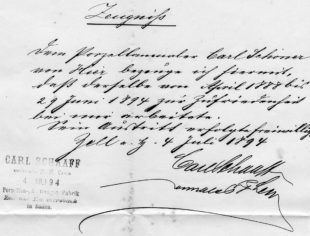 Zeugniß
Dem Porzellanmaler Carl Schöner
von Hier bezeuge ich hiermit,
daß derselbe von April 1888 bis
29 Juni 1894 zur Zufriedenheit
bei mir arbeitete.
Sein Austritt erfolgte freiwillig
Zell a. H. 4 Juli 1894
Carl Schaaff
CARL SCHAAFF
4 JULI 94
in Baden.